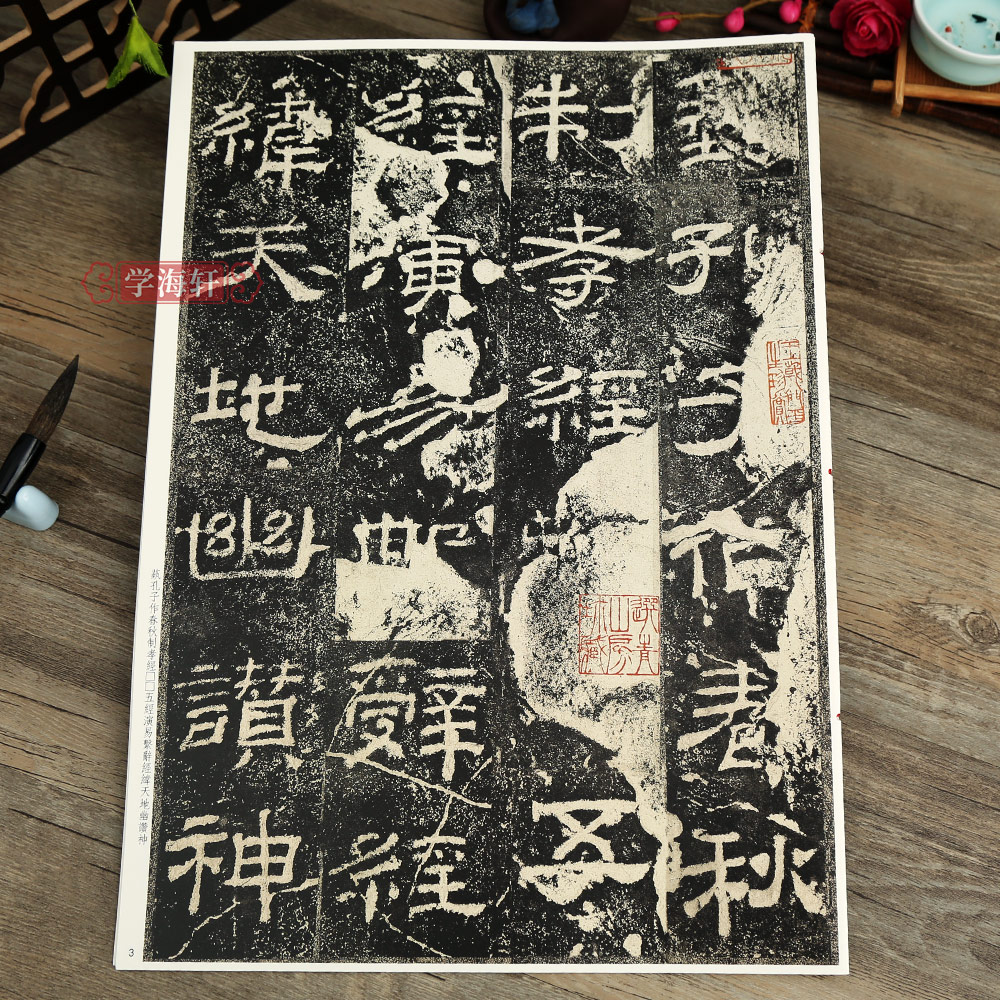 藝孔子作春秋
制孝經五
經演易繫辭經
緯天地幽讚神
藝孔子作春秋制孝經□□五經演易繫辭經緯天地幽讚神
3
学海轩